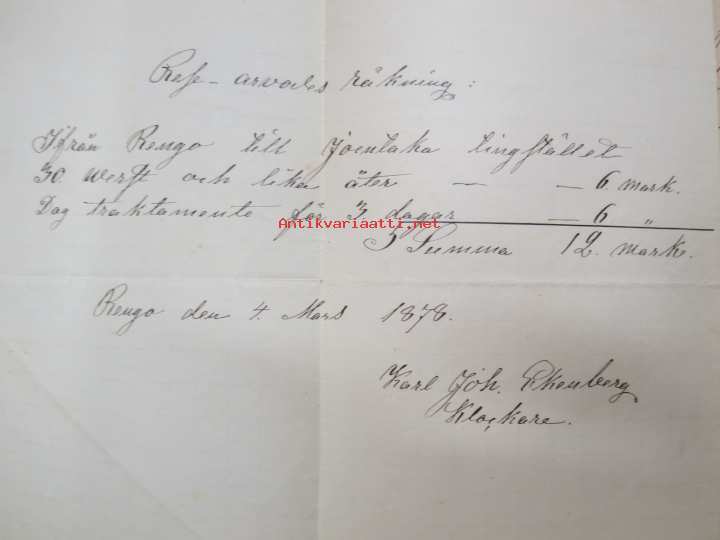 Rese-arvodes räkning:
Ifrån Rengo till Joentaka tingstället
30 werst och lika åter — — 6 mark.
Dag traktamente för 3 dagar — 6 „
Antikvariaatti.net
S Summa 12 mark.
Rengo den 4 Mars 1878.
Karl Joh. Ekenberg
Klockare.